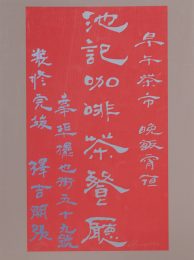 早午茶市 晚飯宵夜
池記咖啡茶餐廳
士街五十九號
裝修完竣 擇吉開張